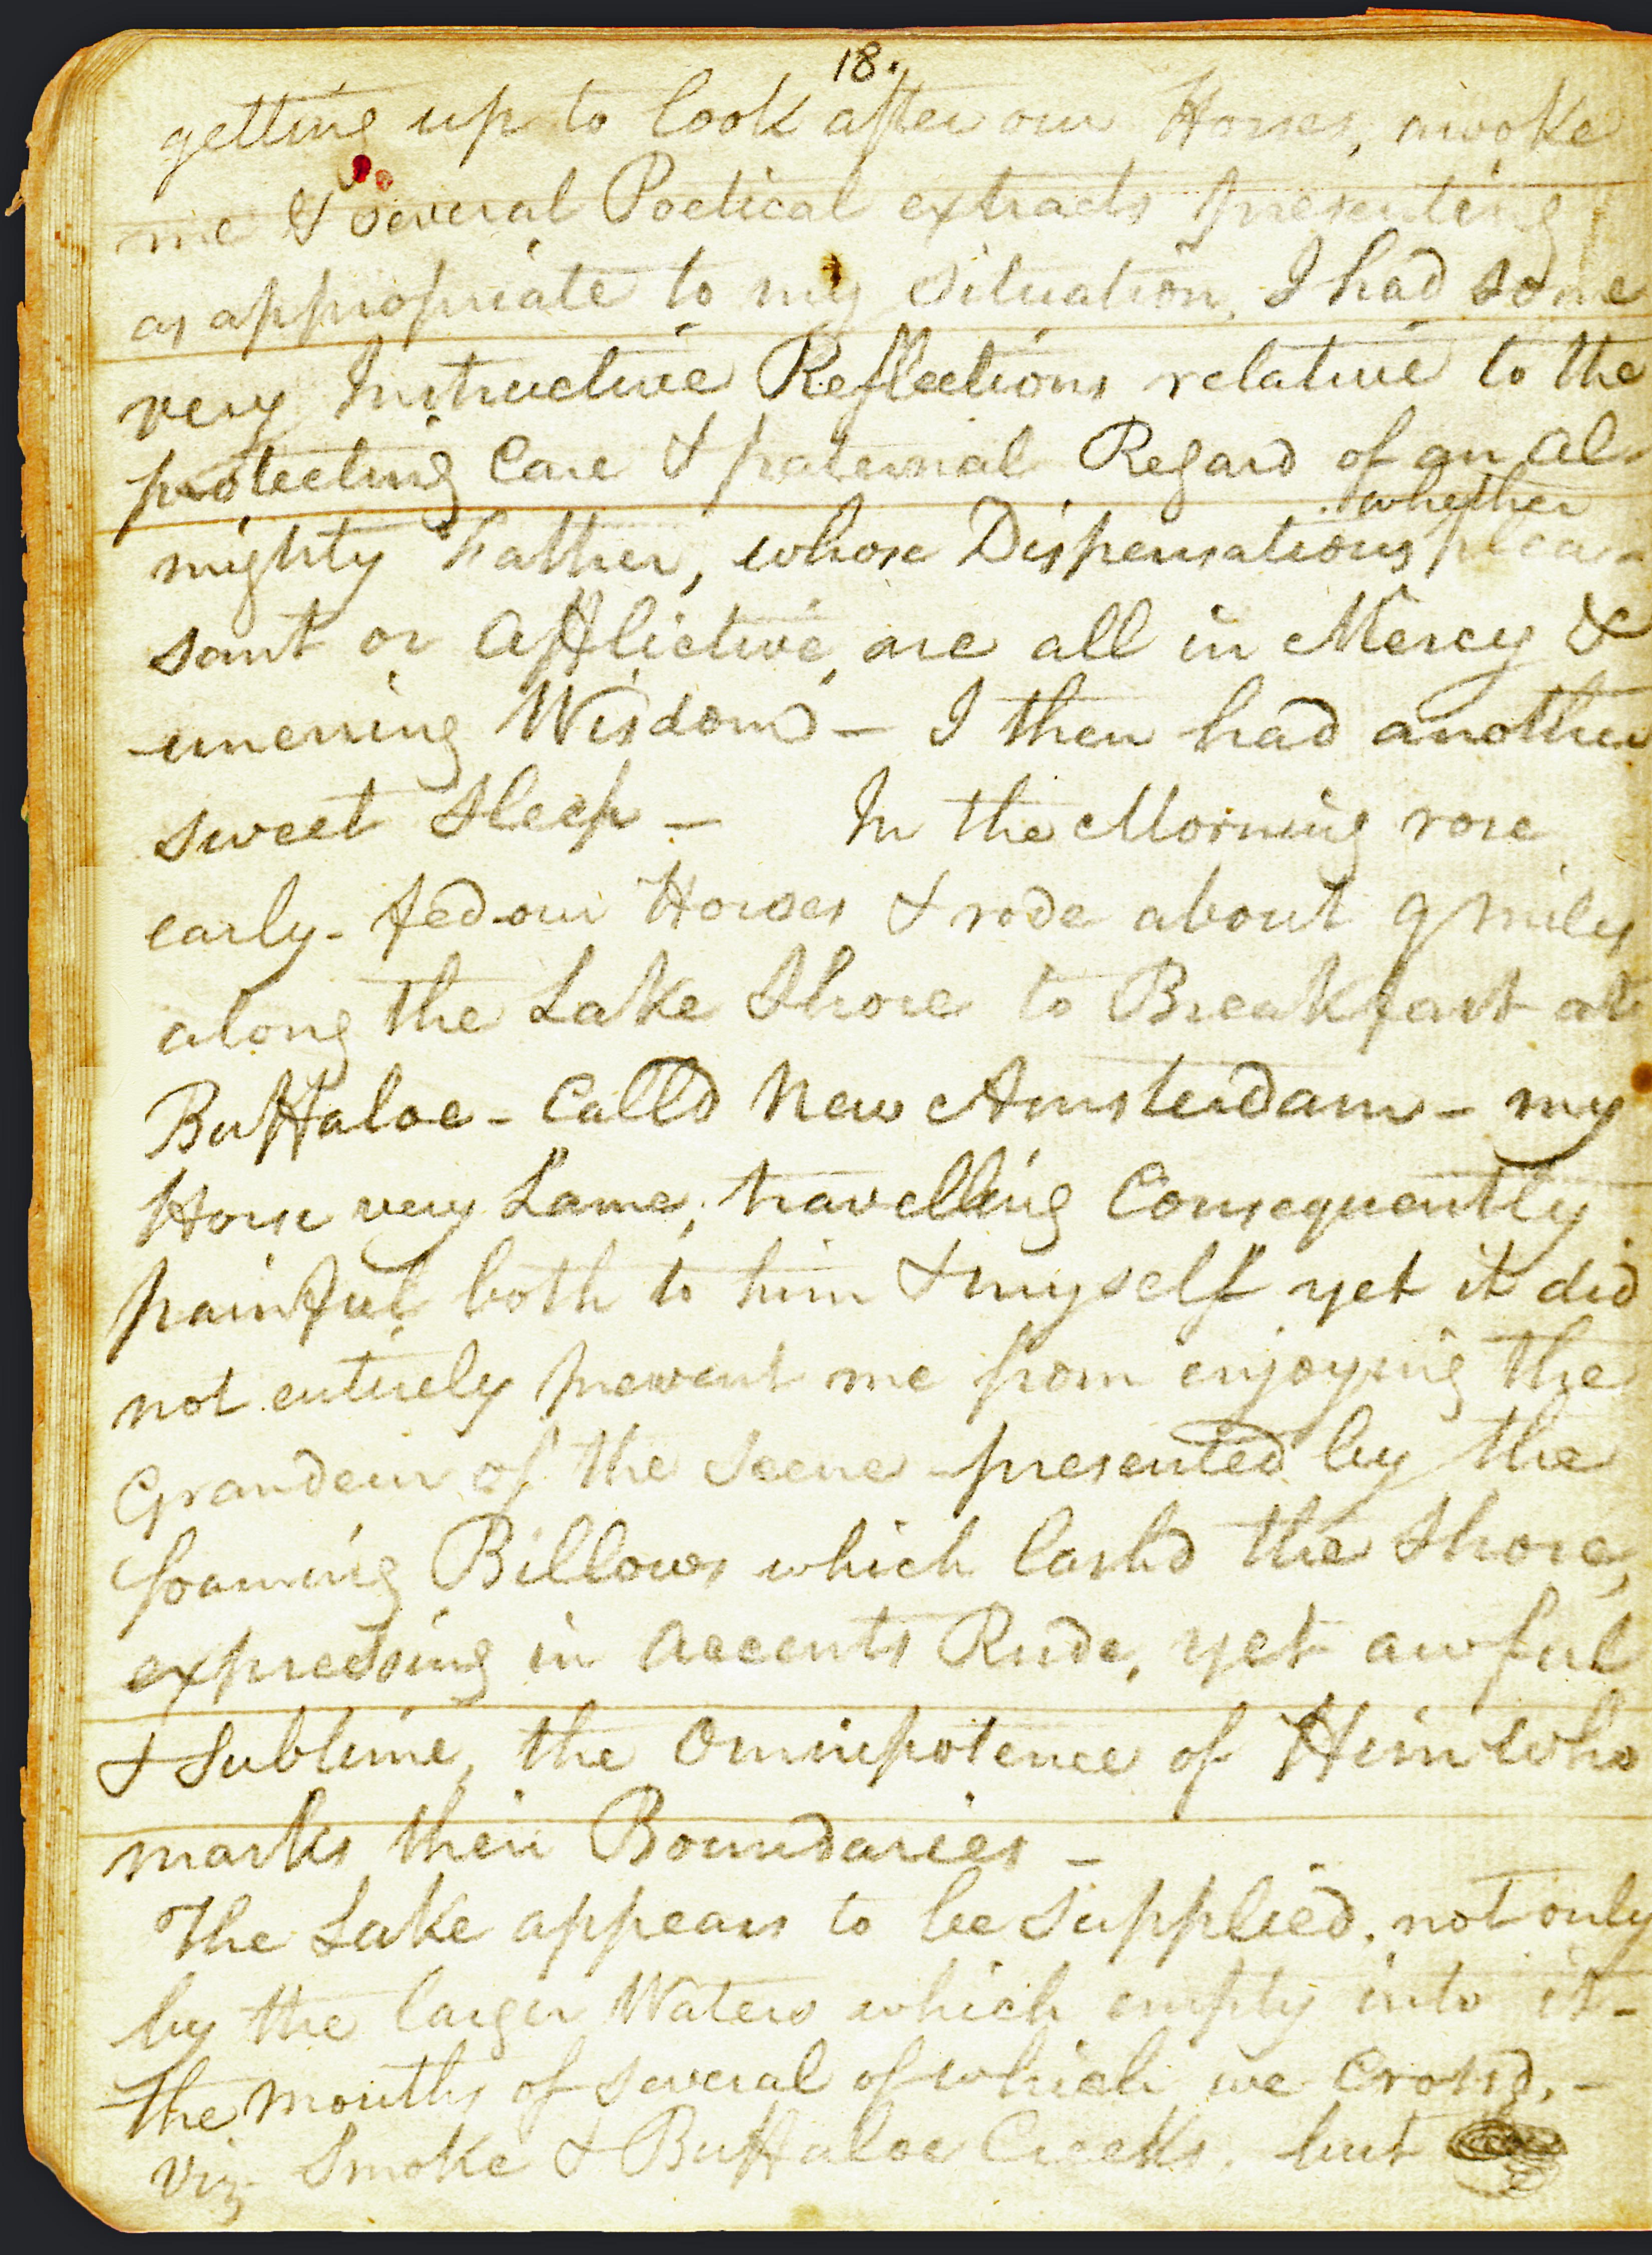 18.
getting up to look after our Horses, awoke
me & several Poetical extracts presenting
as appropriate to my situation, I had some
very Instructive Reflections relative to the
protecting Care & paternal Regard of an Al-
whether
mighty Father, whose Dispensations plea-
sant or Afflictive, are all in Mercy &
unerring Wisdom - I then had another
sweet sleep - In the Morning rose
early - fed our Horses & rode about 9 miles
along the Lake Shore to Breakfast at
Buffaloe - Call'd New Amsterdam - my
Horse very Lame, travelling Consequently
painful both to him & myself yet it did
not entirely prevent me from enjoying the
Grandeur of the Scene presented by the
foaming Billows which lash'd the Shore,
expressing in Accents Rude, yet awful
& Sublime, the Omnipotence of Him Who
marks their Boundaries -
The Lake appears to be supplied, not only
by the larger Waters which empty into it -
the mouths of several of which we Cross'd, -
viz Smoke & Buffaloe Creeks, but